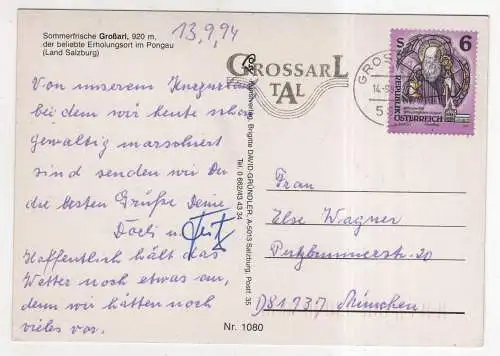 Sommerfrische Großarl, 920 m,
der beliebte Erholungsort im Pongau
(Land Salzburg)
13.9.94
Von unserem Kurzurlaub
bei dem wir heute schon
gewaltig marschiert
sind senden wir Dir
die besten Grüße Deine
Dorli u. Fritz
Hoffentlich hält das
Wetter noch etwas an,
denn wir hätten noch
vieles vor.
GROSSARL
TAL
GROSS
14.-9.
5
S 6
REPUBLIK
ÖSTERREICH
Brigitte DAVID-GRÜNDLER, A-5013 Salzburg, Postf. 35
Tel. 0 662/43 43 34
Frau
Else Wagner
Putzbrunnerstr. 20
D 81737 München
Nr. 1080